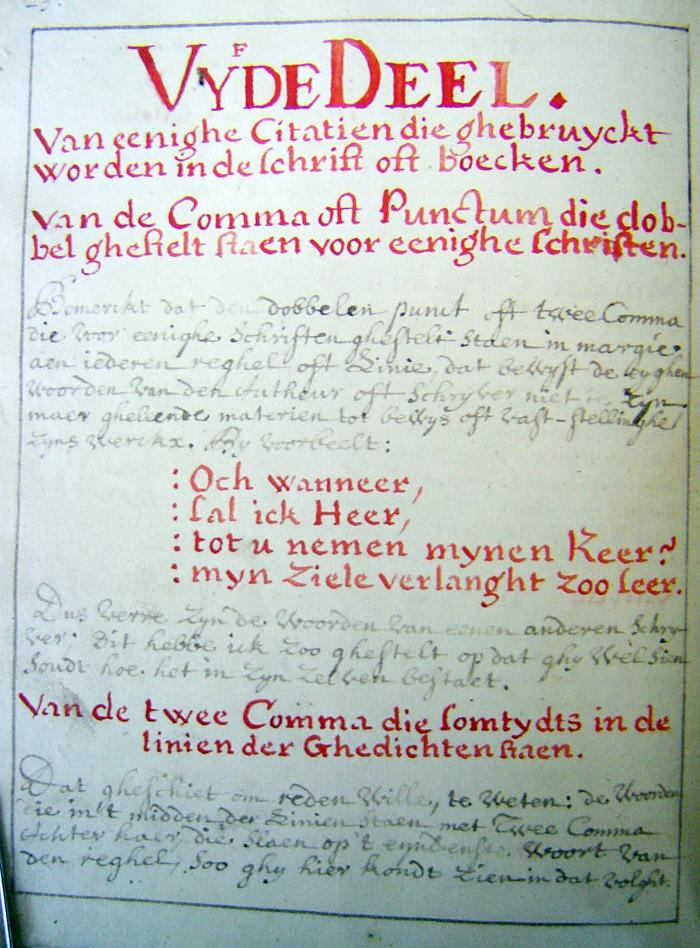 VYFDE DEEL.
Van eenighe Citatien die ghebruyckt
worden in de schrift oft boecken.
Van de Comma oft Punctum die dob-
bel ghestelt staen voor eenighe schriften.
Bemerckt dat den dobbelen punct oft twee Comma
die voor eenighe Schriften ghestelt Staen in margie
aen iederen reghel oft Linie, dat bewyst de eyghen
woorden van den Autheur oft Schryver niet te Zyn
maer gheleende materien tot bewys oft vast-stellinghe
Zyns wercks. By voorbeelt:
: Och wanneer,
: sal ick Heer,
: tot u nemen mynen Keer?
: myn Ziele verlanght zoo seer.
Dus verre Zyn de Woorden van eenen anderen Schry-
ver; Dit hebbe ick Zoo ghestelt op dat ghy Wel Sien
Soudt hoe het in Zyn Zelven bestaet.
Van de twee Comma die somtydts in de
linien der Ghedichten staen.
Dat gheschiet om reden Wille, te Weten: de Woorden
die in't midden der Linien Staen met Twee Comma
Achter haer, die Slaen op't eynd'enste Woort van
den reghel, Soo ghy hier kondt Zien in dat volght.